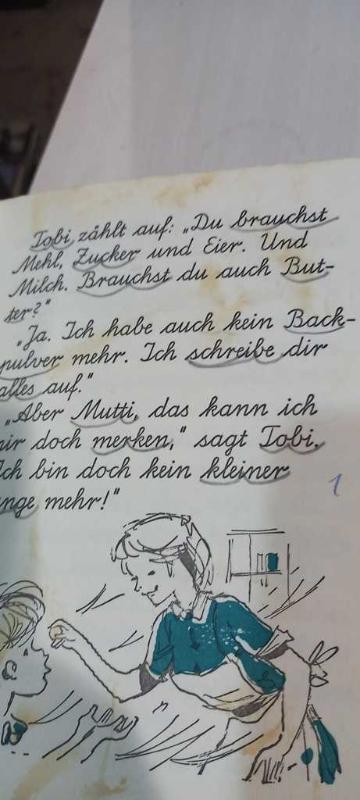 Tobi zählt auf: „Du brauchst
Mehl, Zucker und Eier. Und
Milch. Brauchst du auch But-
ter?"
„Ja. Ich habe auch kein Back-
pulver mehr. Ich schreibe dir
alles auf."
„Aber Mutti, das kann ich
mir doch merken," sagt Tobi.
Ich bin doch kein kleiner
unge mehr!"
1